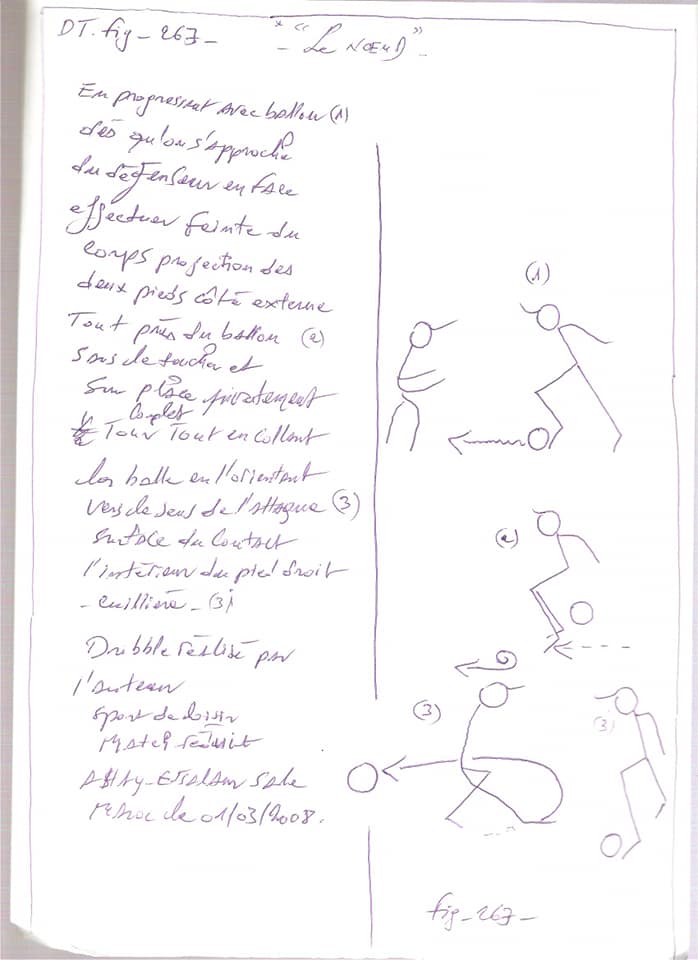 DT. fig - 267 -
* " Le NŒUD " -
En progressant avec ballon (1)
dès qu'on s'approche
du défenseur en face
effectuer feinte du
corps projection des
deux pieds côté externe
Tout près du ballon (2)
sans le toucher et
sur place pivotement
complet
Tour Tout en collant
la balle en l'orientant
vers le sens de l'attaque (3)
surface du contact
l'intérieur du pied droit
- cuillière - (3)
Dribble réalisé par
l'auteur
sport de loisir
Match réduit
Salé
Maroc le 01/03/2008.
(1)
(2)
(3)
(3)
fig - 267 -